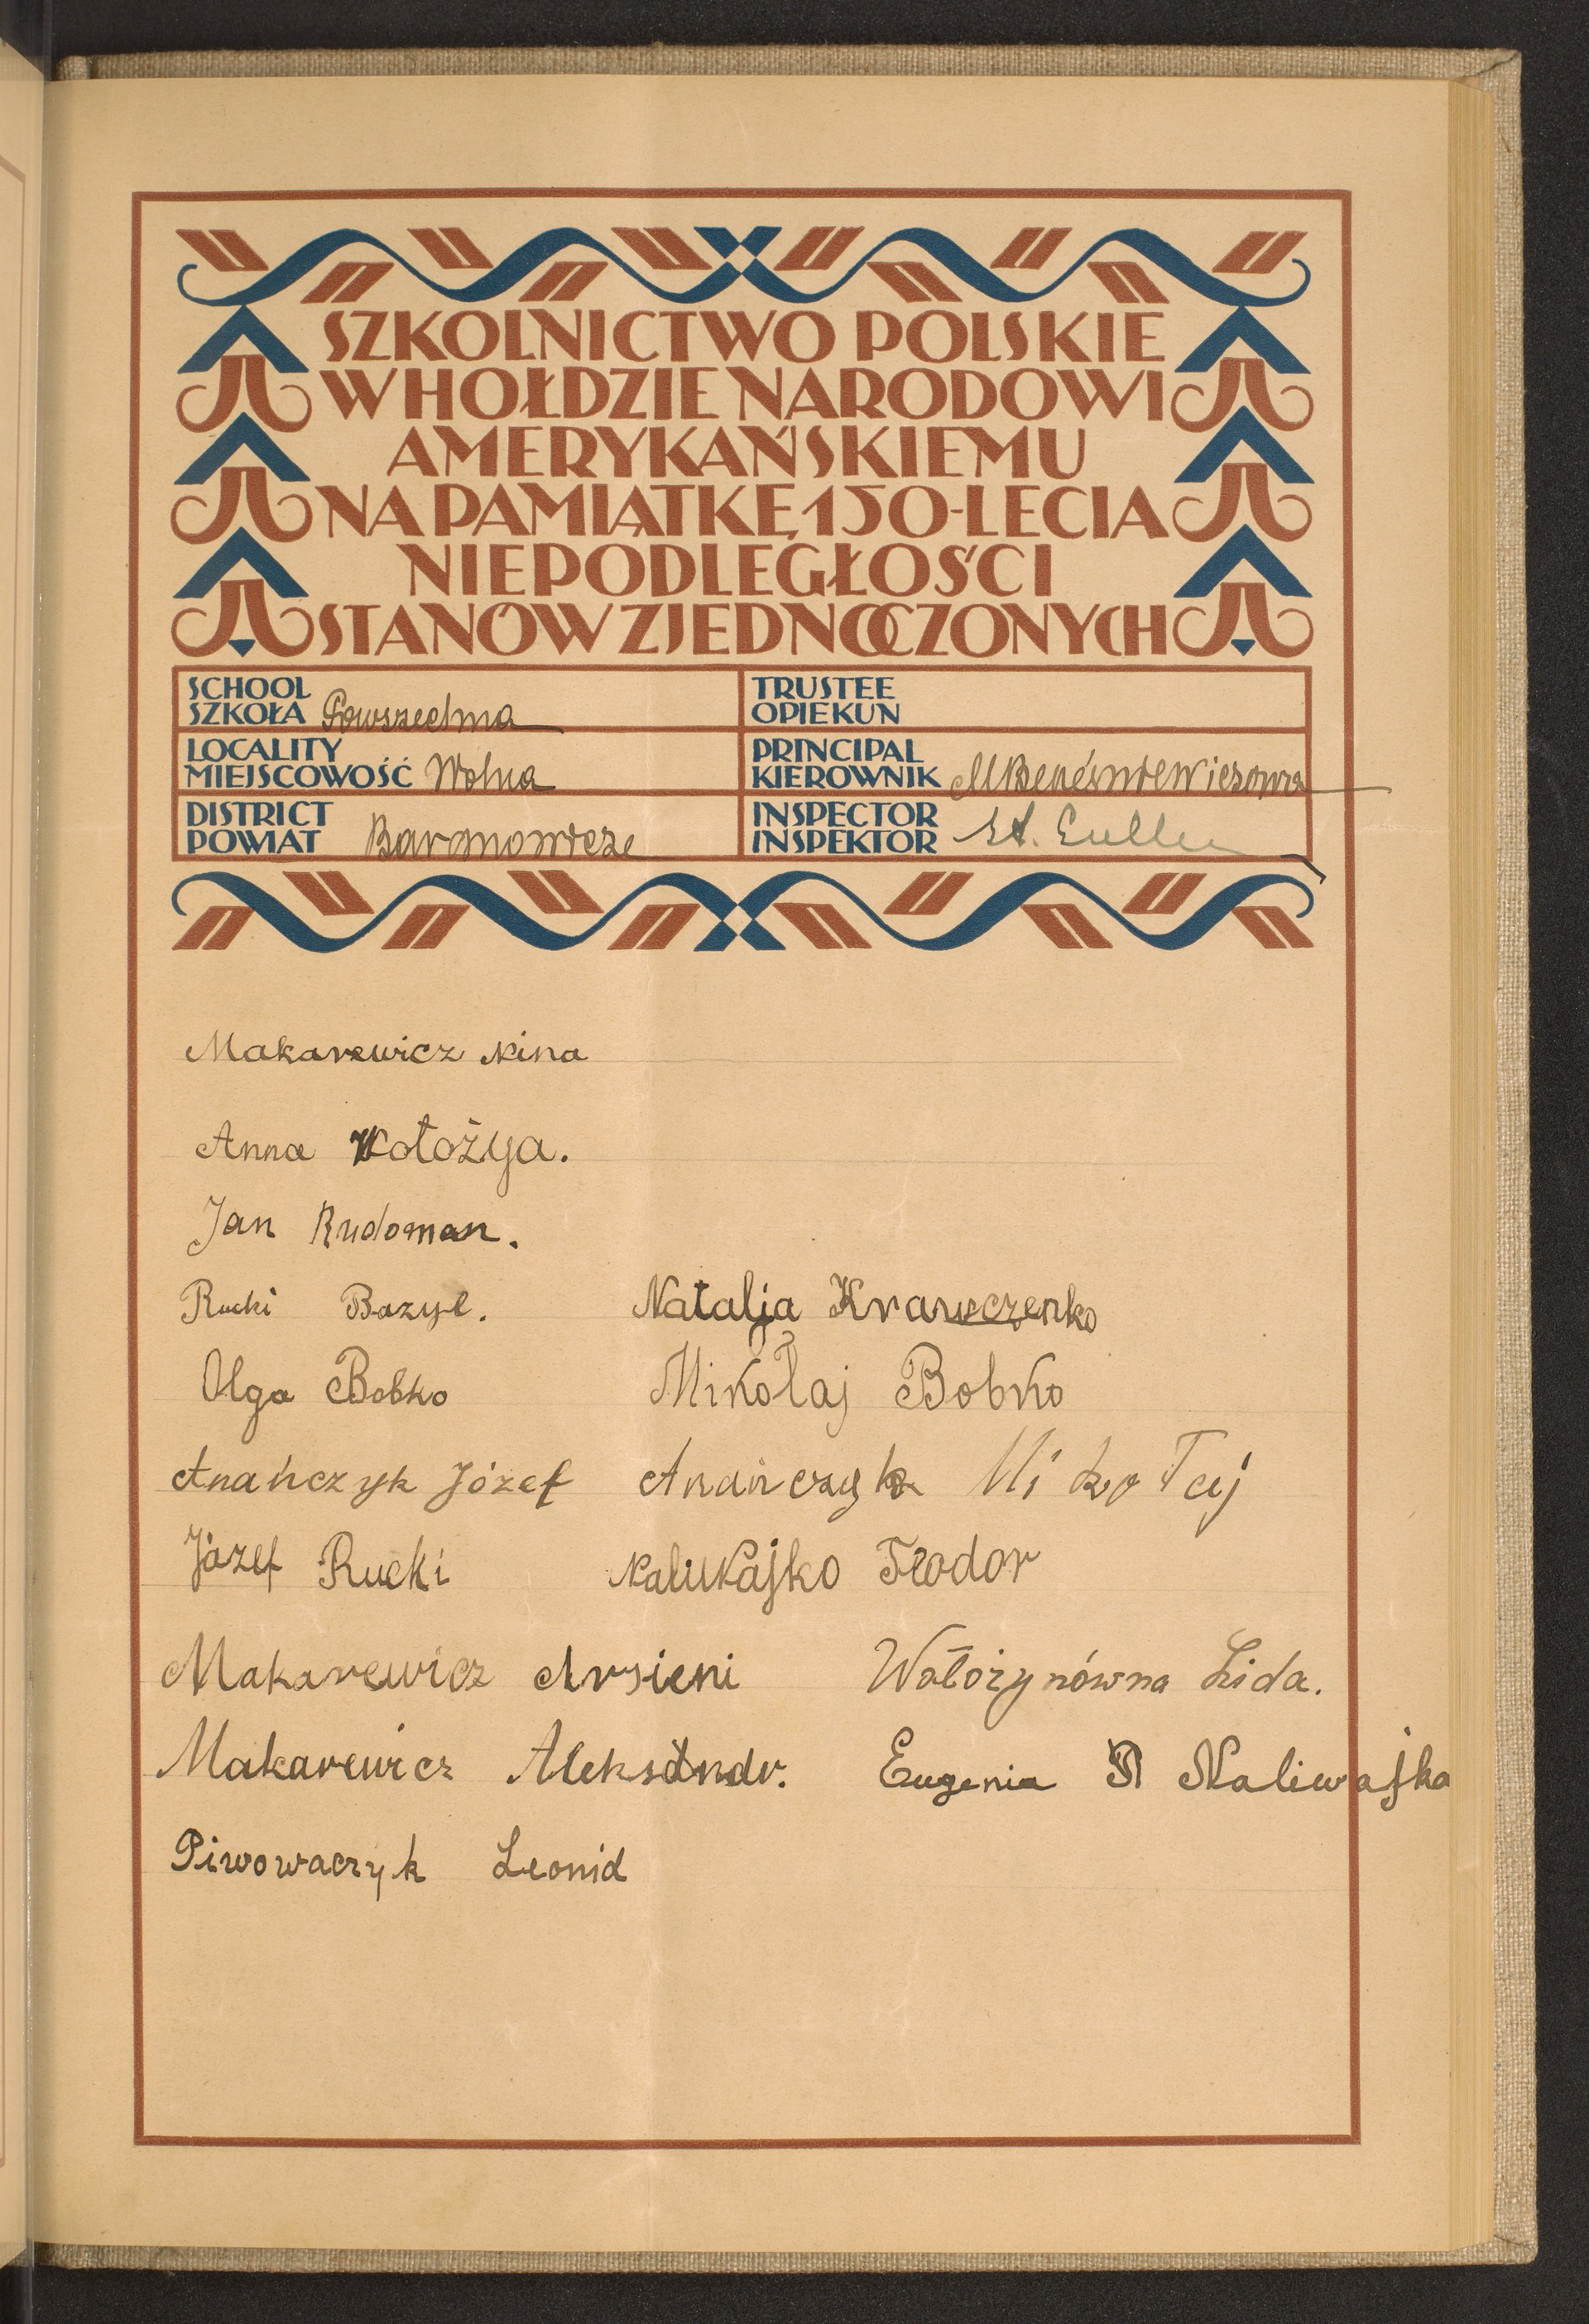 SZKOLNICTWO POLSKIE
W HOŁDZIE NARODOWI
AMERYKAŃSKIEMU
NA PAMIĄTKĘ 150-LECIA
NIEPODLEGŁOŚCI
STANÓW ZJEDNOCZONYCH
SCHOOL
SZKOŁA Powszechna
TRUSTEE
OPIEKUN
LOCALITY
MIEJSCOWOŚĆ Wolna
PRINCIPAL
KIEROWNIK
DISTRICT
POWIAT Baranowicze
INSPECTOR
INSPEKTOR St.
Makarewicz Nina
Anna
Jan Rudoman.
Rucki Bazyl. Natalja Krawczenko
Olga Bobko Mikołaj Bobko
Anańczyk Józef Anańczyk Mikołaj
Józef Rucki Naliwajko Teodor
Makarewicz Arsieni Wołożynówna Lida.
Makarewicz Aleksandr. Eugenia N Naliwajka
Piwowaczyk Leonid